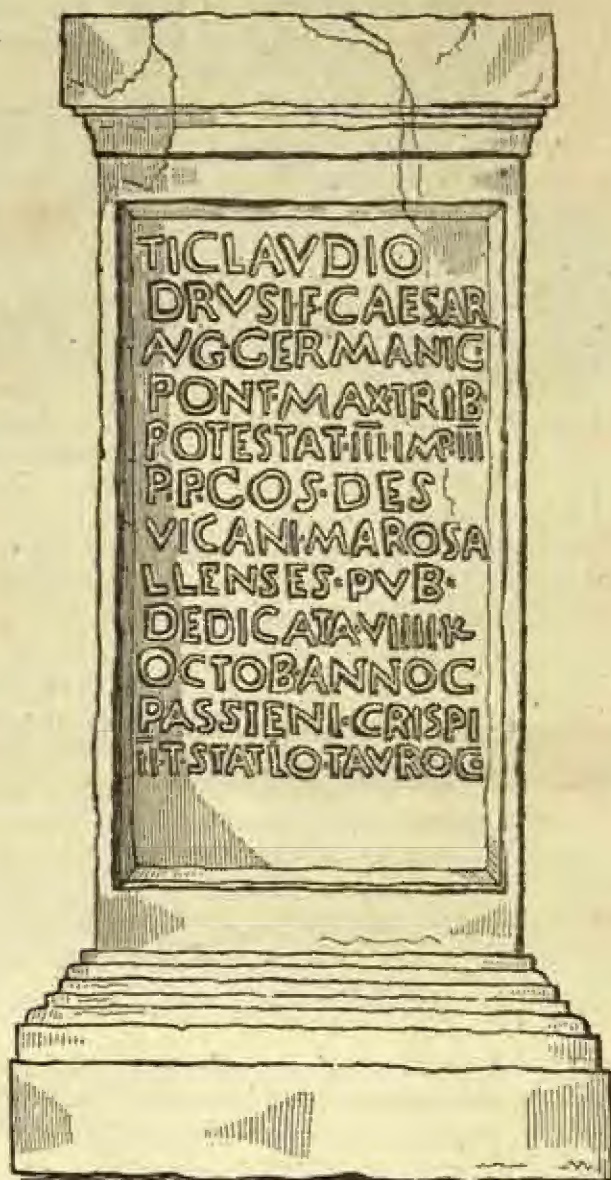 TI CLAVDIO
DRVSI·F·CAESAR
AVG·GERMANIC·
PONT·MAX·TRIB·
POTESTAT·III̅I·IMP·III̅
P·P·COS·DES
VICANI·MAROSA
LLENSES·PVB·
DEDICATA·VIIII·K·
OCTOB·ANNO C
PASSIENI·CRISPI
I̅I̅·T·STATLO·TAVRO C·